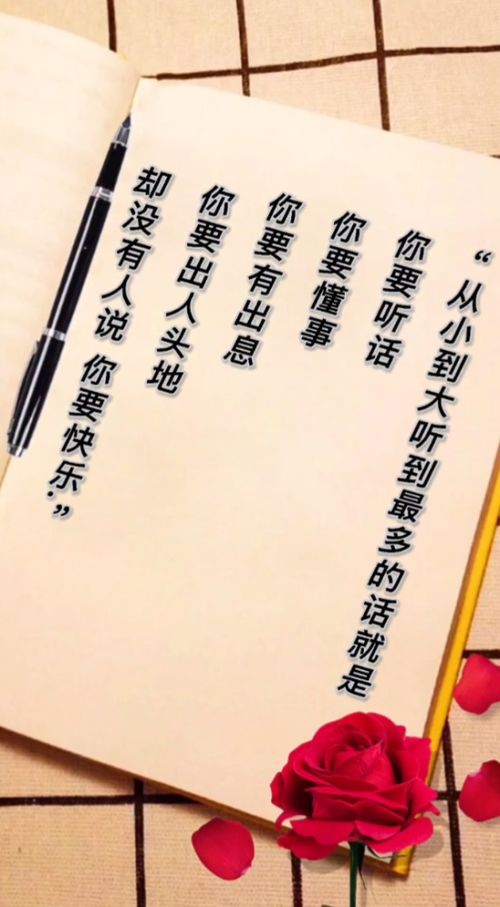 “从小到大听到最多的话就是
你要听话
你要懂事
你要有出息
你要出人头地
却没有人说 你要快乐.”